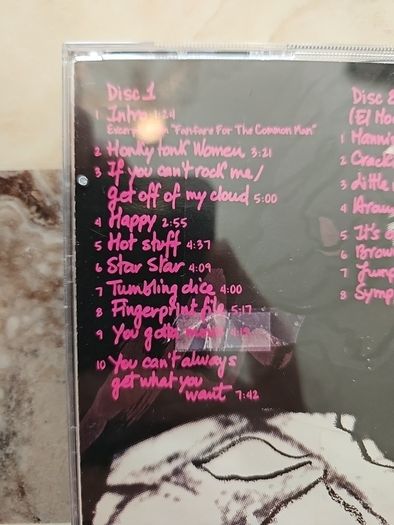 Disc 1
1 Intro 1:24
Excerpt from "Fanfare For The Common Man"
2 Honky tonk Women 3:21
3 If you can't rock me/
get off of my cloud 5:00
4 Happy 2:55
5 Hot stuff 4:37
6 Star Star 4:09
7 Tumbling dice 4:00
8 Fingerprint file 5:17
9 You gotta move
10 You can't always
get what you
want 7:42
Disc
(El Mo
1 Mannis
2 Crack
3 little
4 Aroun
5 It's
6 Brow
7 Jump
8 Symp